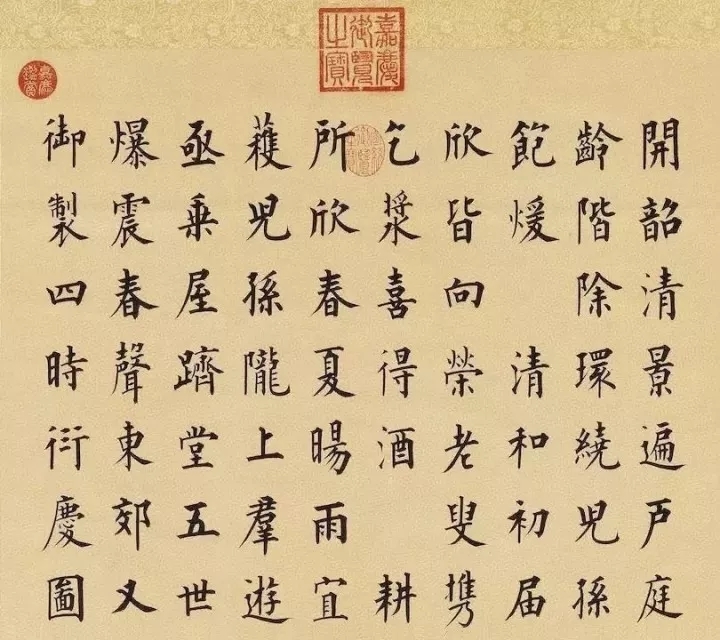 嘉慶御覽之寶
嘉慶鑑賞
開韶清景遍戶庭
齡階除環繞兒孫
飽煖 清和初届
欣皆向榮老叟携
乞漿喜得酒 耕
所欣春夏暘雨宜
穫兒孫隴上羣遊
亟乗屋躋堂五世
爆震春聲東郊又
御製四時衍慶圖